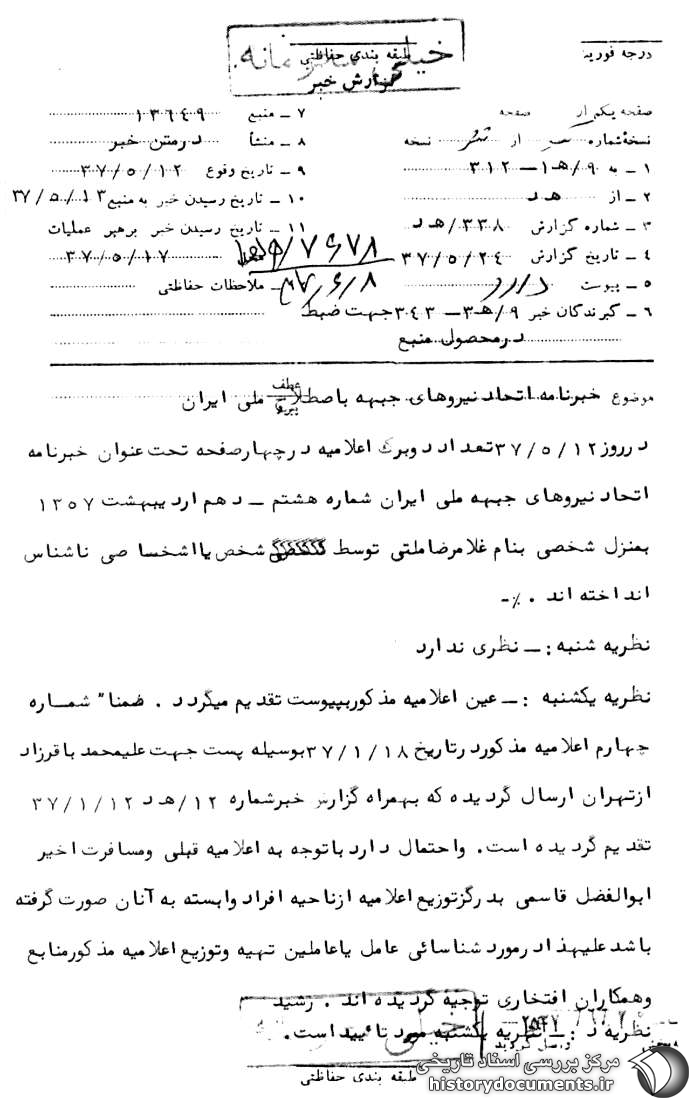 درجه فوریت
طبقه بندی حفاظتی
خیلی محرمانه
گزارش خبر
صفحه یکم از صفحه
نسخه شماره از نسخه
۱ ـ به ۹/هـ۱ ـ ۳۱۲
۲ ـ از هـ د
۳ ـ شماره گزارش ۳۳۸/هـ د
۴ ـ تاریخ گزارش ۳۷/۵/۲۴
۵ ـ پیوست دارد
۶ ـ گیرندگان خبر ۹/هـ۳ ـ ۳۴۳ جهت ضبط
درمحصول منبع
۷ ـ منبع ۱۳۶۴۹
۸ ـ منشأ درمتن خبر
۹ ـ تاریخ وقوع ۳۷/۵/۱۲
۱۰ ـ تاریخ رسیدن خبر به منبع ۳۷/۵/۱۳
۱۱ ـ تاریخ رسیدن خبر برهبر عملیات
۳۷/۵/۱۷
ملاحظات حفاظتی
۳۷/۶/۸
موضوع خبرنامه اتحاد نیروهای جبهه باصطلاح ملی ایران
عطف
پیرو
درروز ۳۷/۵/۱۲ تعداد دوبرگ اعلامیه درچهارصفحه تحت عنوان خبرنامه
اتحاد نیروهای جبهه ملی ایران شماره هشتم ـ دهم اردیبهشت ۱۳۵۷
بمنزل شخصی بنام غلامرضاملتی توسط شخص یااشخسا صی ناشناس
انداخته اند . ٪-
نظریه شنبه : ـ نظری ندارد
نظریه یکشنبه : ـ عین اعلامیه مذکوربپیوست تقدیم میگردد . ضمنا" شماره
چهارم اعلامیه مذکوردرتاریخ ۳۷/۱/۱۸ بوسیله پست جهت علیمحمد باقرزاد
ازتهران ارسال گردیده که بهمراه گزارش خبرشماره ۱۲/هـ د ۳۷/۱/۱۲
تقدیم گردیده است. واحتمال دارد باتوجه به اعلامیه قبلی ومسافرت اخیر
ابوالفضل قاسمی بدرگزتوزیع اعلامیه ازناحیه افراد وابسته به آنان صورت گرفته
باشد علیهذا درمورد شناسائی عامل یاعاملین تهیه وتوزیع اعلامیه مذکورمنابع
وهمکاران افتخاری توجیه گردیده اند . رشید
نظریه د : ـ نظریه یکشنبه مورد تائید است.
طبقه بندی حفاظتی
مرکز بررسی اسناد تاریخی
historydocuments.ir